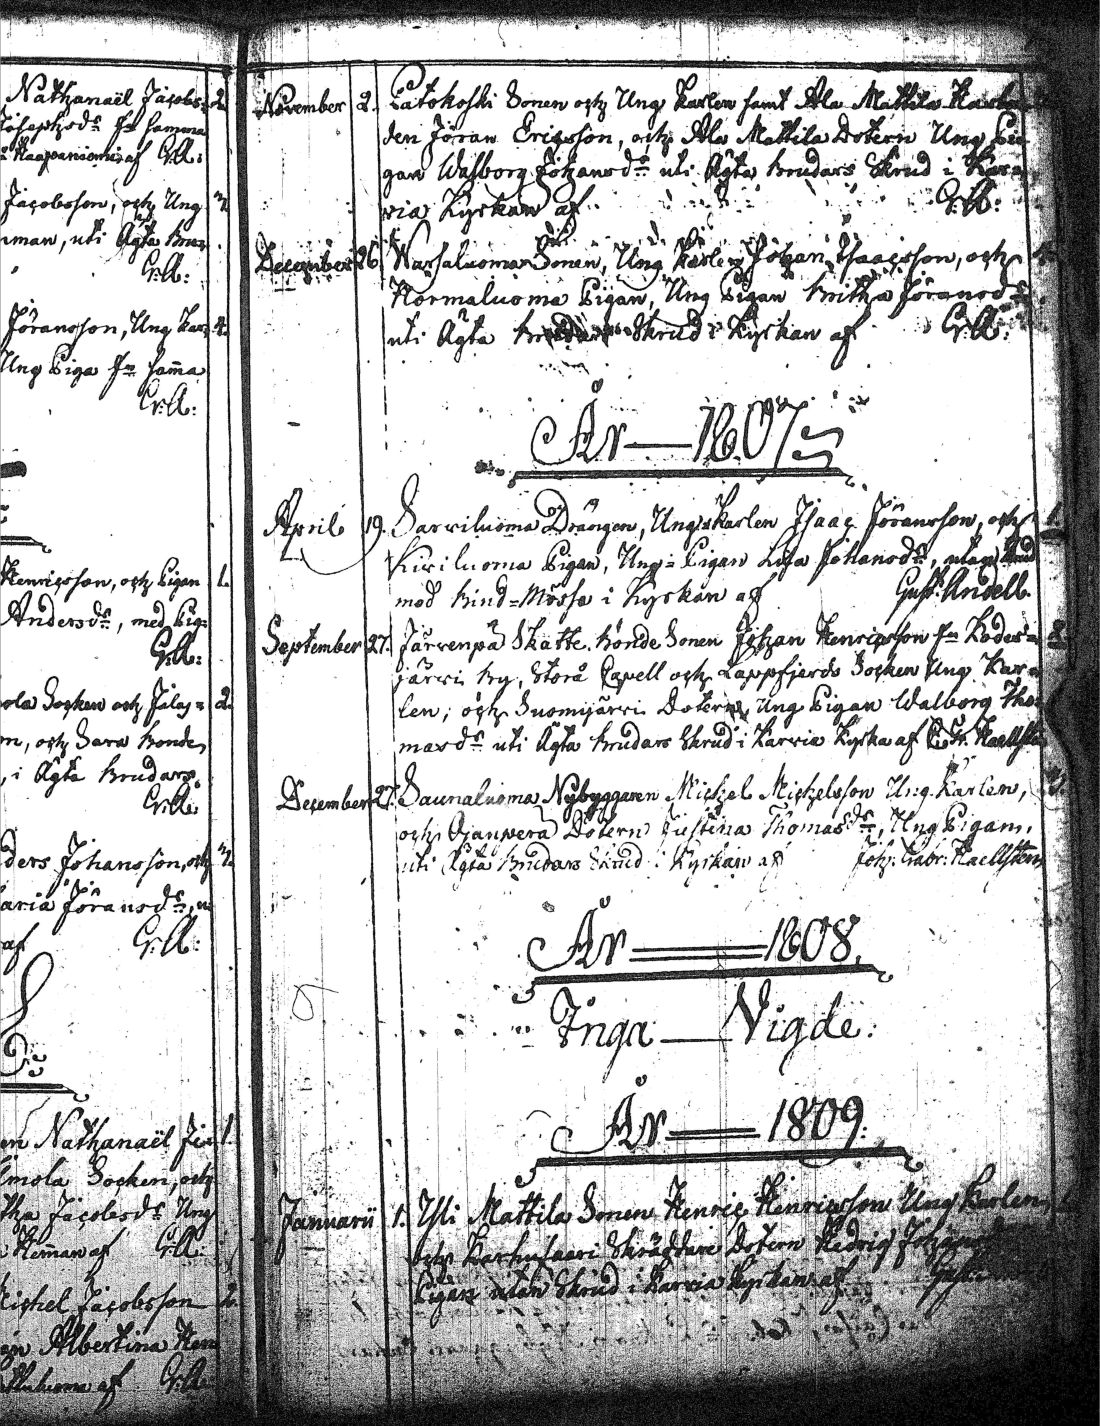 Nathanaël Jacobs= 2.
Josephsdr fr samma
Haapaniemi af G:A:
Jacobsson, och Ung 3.
man, uti Ägta Bru=
G:A:
Jöransson, Ung Kar= 4.
Ung Piga fr samma
G:A:
Henricsson, och Pigan 1.
Andersdr, med Pig=
G:A:
ola Socken och Jalas= 2.
n, och Sara Bonde,
, i Ägta Brudars
G:A:
ders Johansson, och 3.
aria Jöransdr, u
af G:A:
en Nathanaël Ja 1.
lmola Socken, och
tha Jacobsdr Ung
Heman af G:A:
Michel Jacobsson 2.
Albertina Hen
luoma af G:A:
November 2. Låtokoski Sonen och Ung Karlen samt Ala Mattila
den Jöran Ericsson, och Ala Mattila Dotern Ung Pi
gan Walborg Johansdr uti Ägta Brudars Skrud i Karr
via Kyrkan af G:A:
December 26. Warsaluoma Sonen, Ung Karlen Johan Isaacsson, och 4.
Normaluoma Pigan, Ung Pigan Britha Jöransdr
uti Ägta Brudars Skrud i Kyrkan af G:A:
År — 1807
April 19. Sarviluoma Drängen, Ung Karlen Isaac Jöransson, och 1.
Kiviluoma Pigan, Ung=Pigan Lisa Johansdr, utan Skrud
med Bind=Mössa i Kyrkan af Gust: Andell.
September 27. Järvenpä Skatte Bonde Sonen Johan Henricsson fr Kodes= 2.
järvi By, Storå Capell och Lappfjerds Socken Ung Kar=
len; och Suomijärvi Dotern, Ung Pigan Walborg Tho=
masdr uti Ägta Brudars Skrud i Karvia Kyrka af
December 27. Saunaluoma Nybyggaren Michel Michelsson Ung Karlen, 3.
och Ojanperä Dotern Justina Thomasdr, Ung Pigan,
uti Ägta Brudars Skrud i Kyrkan af Joh: Gabr: Haellsten
År — 1808.
Inga — Vigde:
År — 1809.
Januarii 1. Yli Mattila Sonen Henric Henricsson Ung Karlen, 1.
och Karhulaari Skräddare Dotern Hedvig
Pigan utan Skrud i Karvia Kyrkan af Gust: